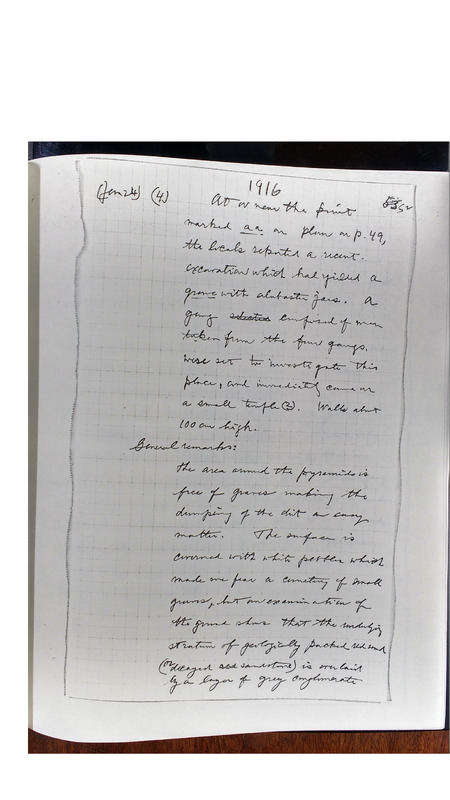 1916
(Jan 24) (4) At or near the point 52
marked aa on plan on p. 49,
the locals reported a recent
excavation which had yielded a
grave with alabaster jars. A
gang composed of men
taken from the four gangs,
were set to investigate this
place, and immediately came on
a small temple (?). Walls about
100 cm high.
General remarks:
the area around the pyramids is
free of graves making the
dumping of the dirt an easy
matter. The surface is
covered with white pebbles which
made me fear a cemetery of small
graves, but an examination of
the ground shows that the underlying
stratum of geologically packed red sand
(or decayed red sandstone) is overlaid
by a layer of grey conglomerate